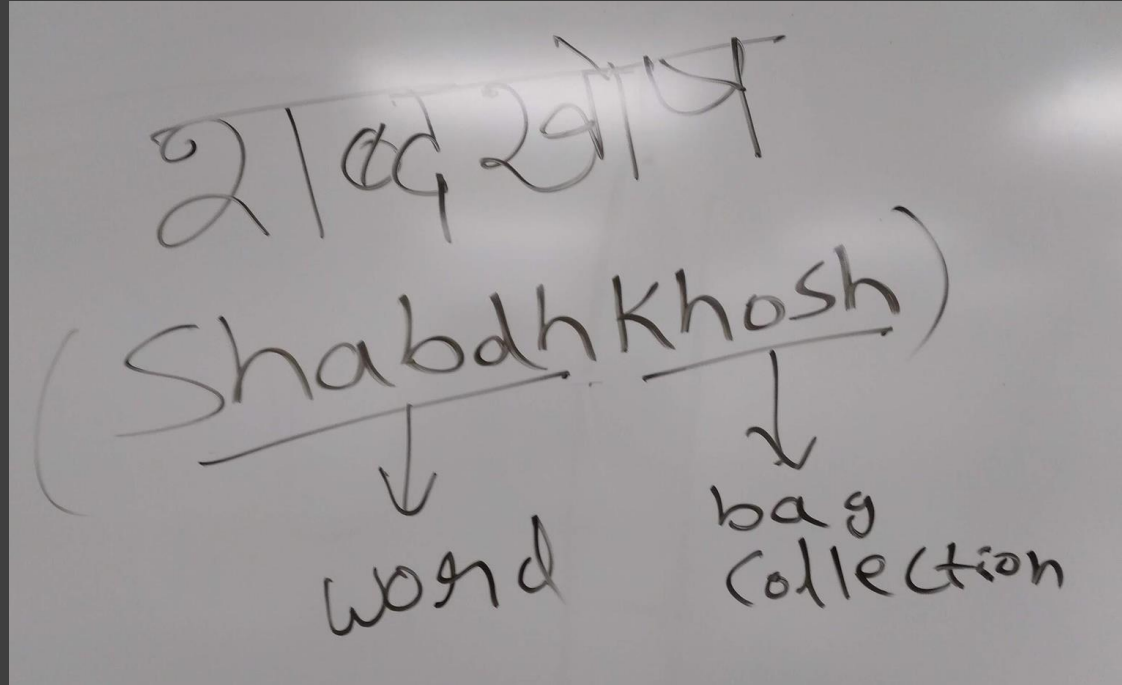 शब्दखोष
(Shabdh Khosh)
word
bag
Collection